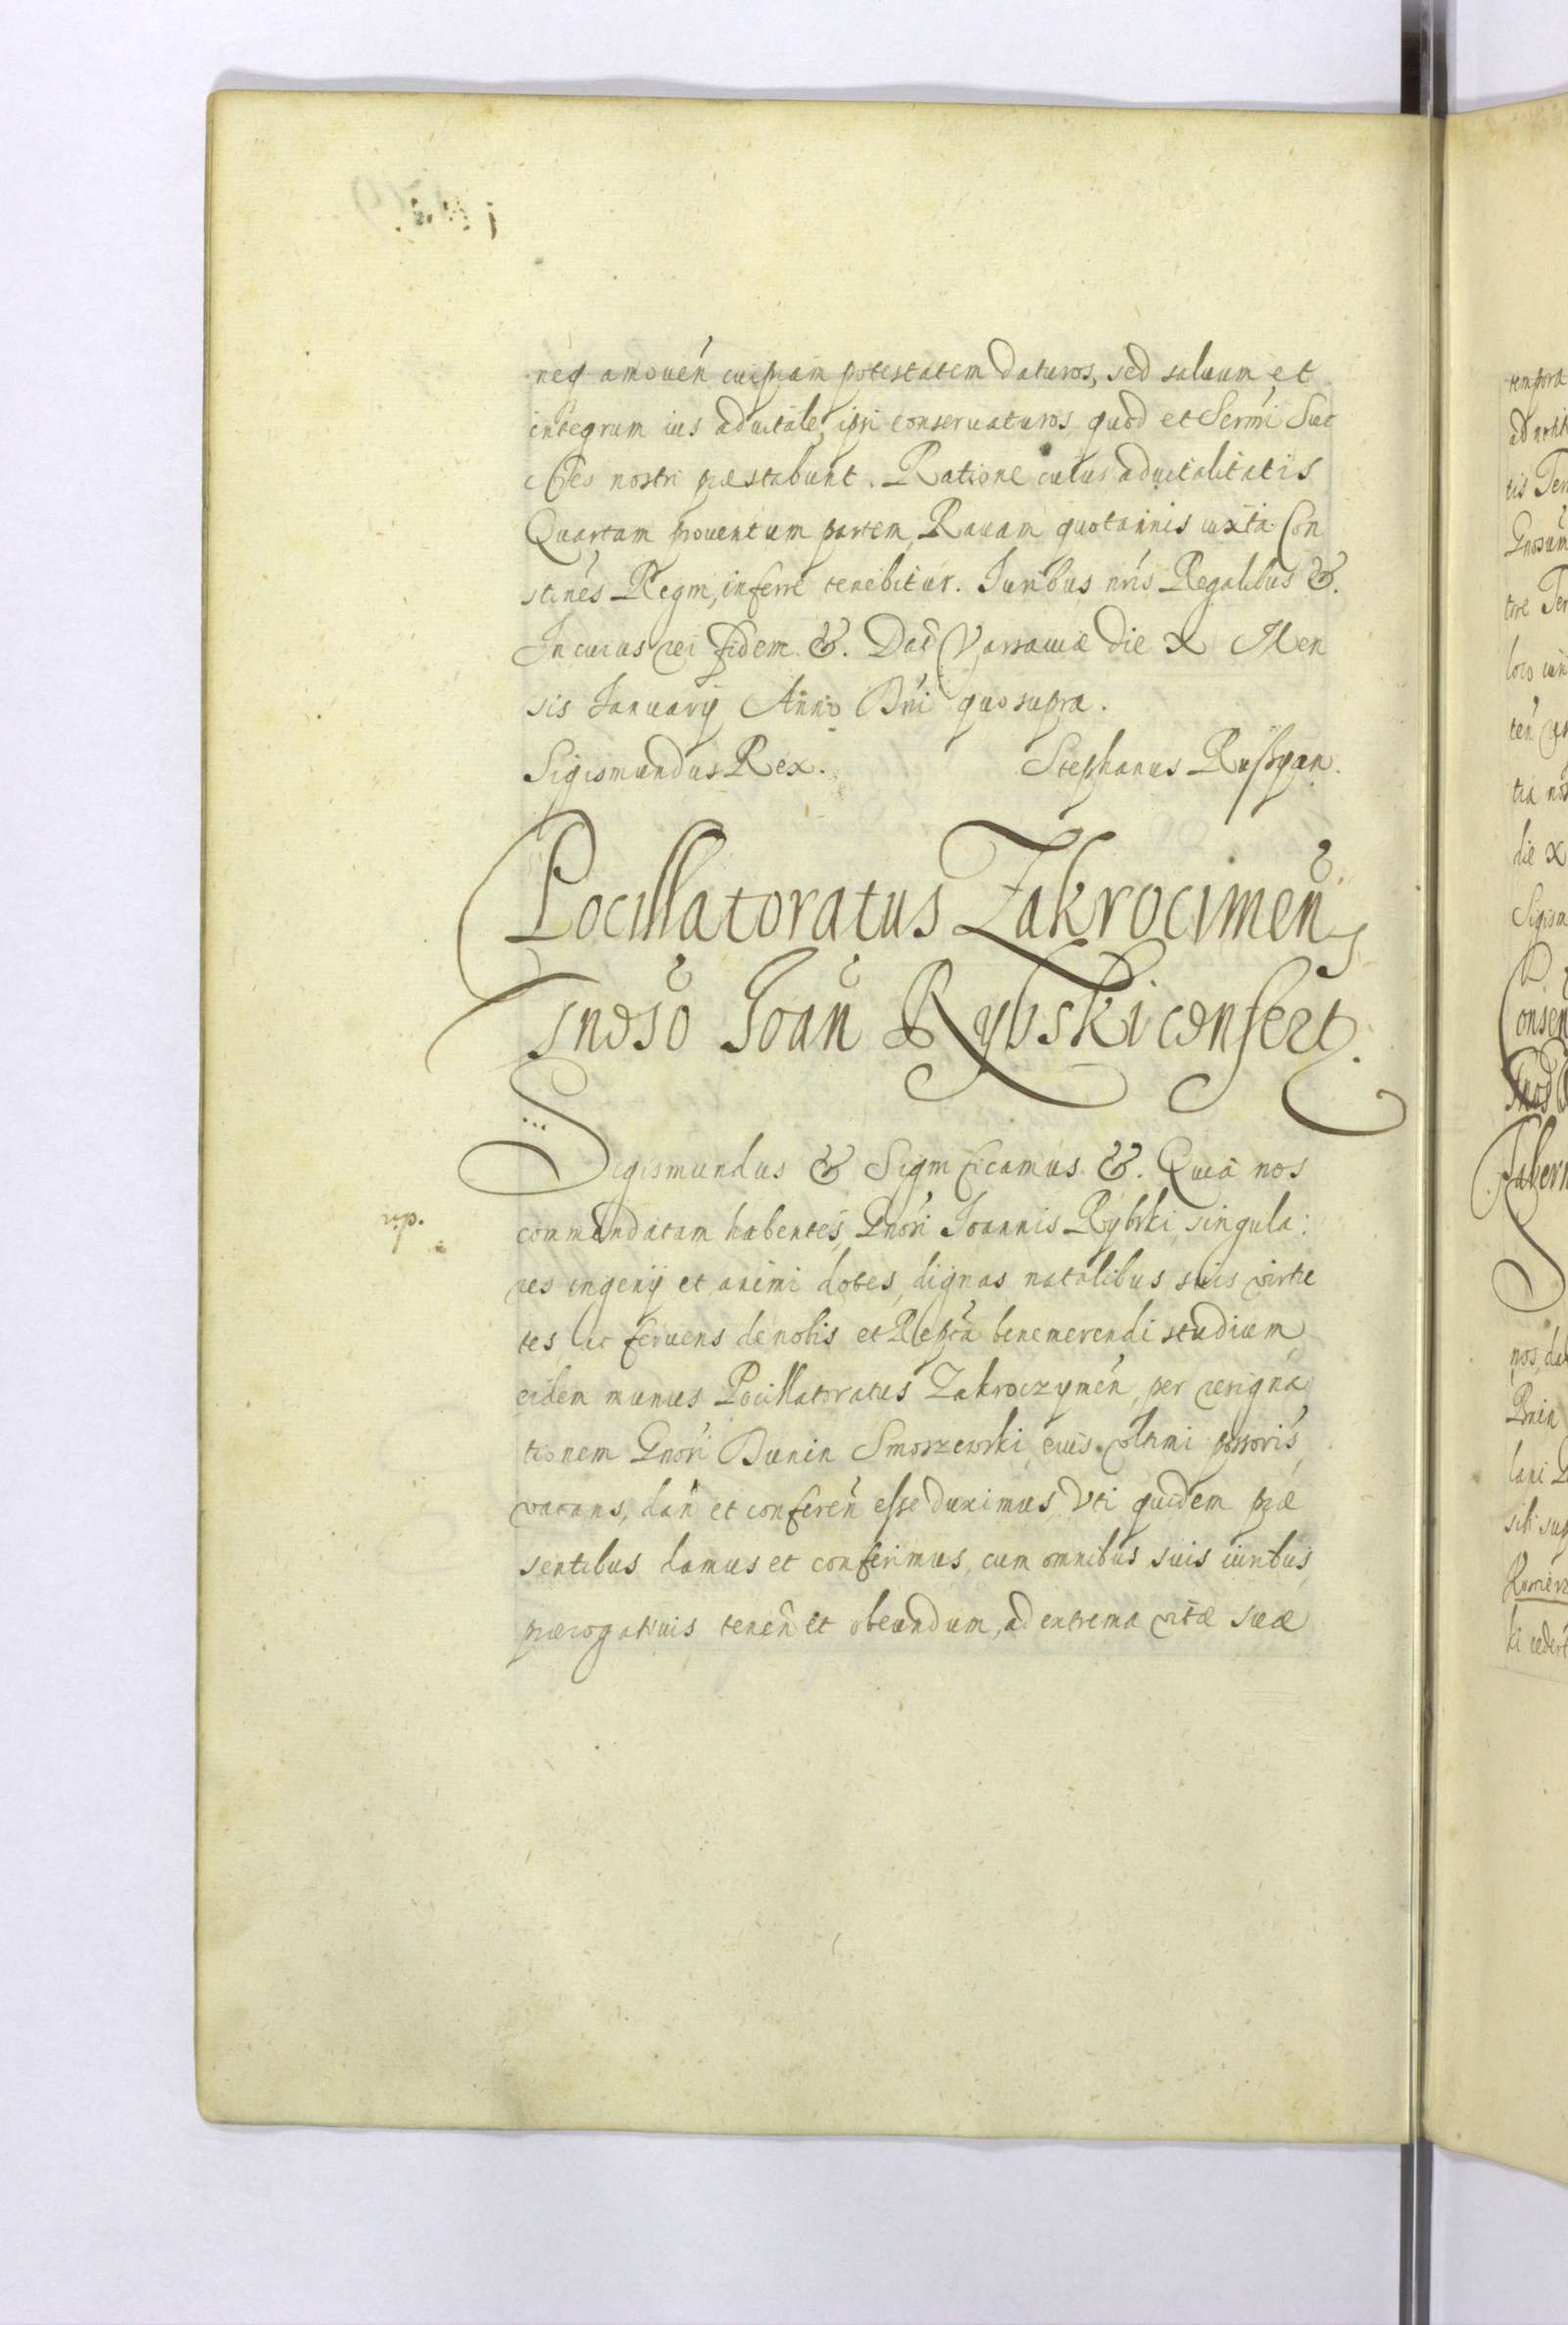 neq amouen̄ cuipiam potestatem daturos, sed saluum et
integrum ius aduitale, ipsi conseruaturos, quod et Sermi Suc
cres nostri præstabunt. Ratione cuius aduitalitatis
Quartam prouentum partem, Rauam quotannis iuxta Con
stines Regni, inferre tenebitur. Iuribus nris Regalibus &.
In cuius rei fidem &. Dat Varsauiæ die X Men
sis Ianuarij Anno Dni quo supra.
Sigismundus Rex. Stephanus Russyan.
Pocillatoratus Zakrocimen̄
Gnoso Joan̄ Rybski confert.
Sigismundus & Significamus &. Quia nos
up.
commendatam habentes, Gnosi Joannis Rybski, singula:
res ingenij et animi dotes, dignas natalibus suis virtu
tes, ac feruens de nobis et Repca benemerendi studium,
eidem munus Pocillatoratus Zakroczymen̄, per resigna
tionem Gnosi Bunin Smoszewski, eius vltimi possoris,
vacans, dan̄ et conferen̄ esse duximus, Vti quidem præ
sentibus damus et conferimus, cum omnibus suis iuribus,
prærogatiuis tenen̄ et obeundum, ad extrema vitæ suæ
tempora
tis Ter
loco
die X
Sigism
onsen
nos, da
lani
sibi sup